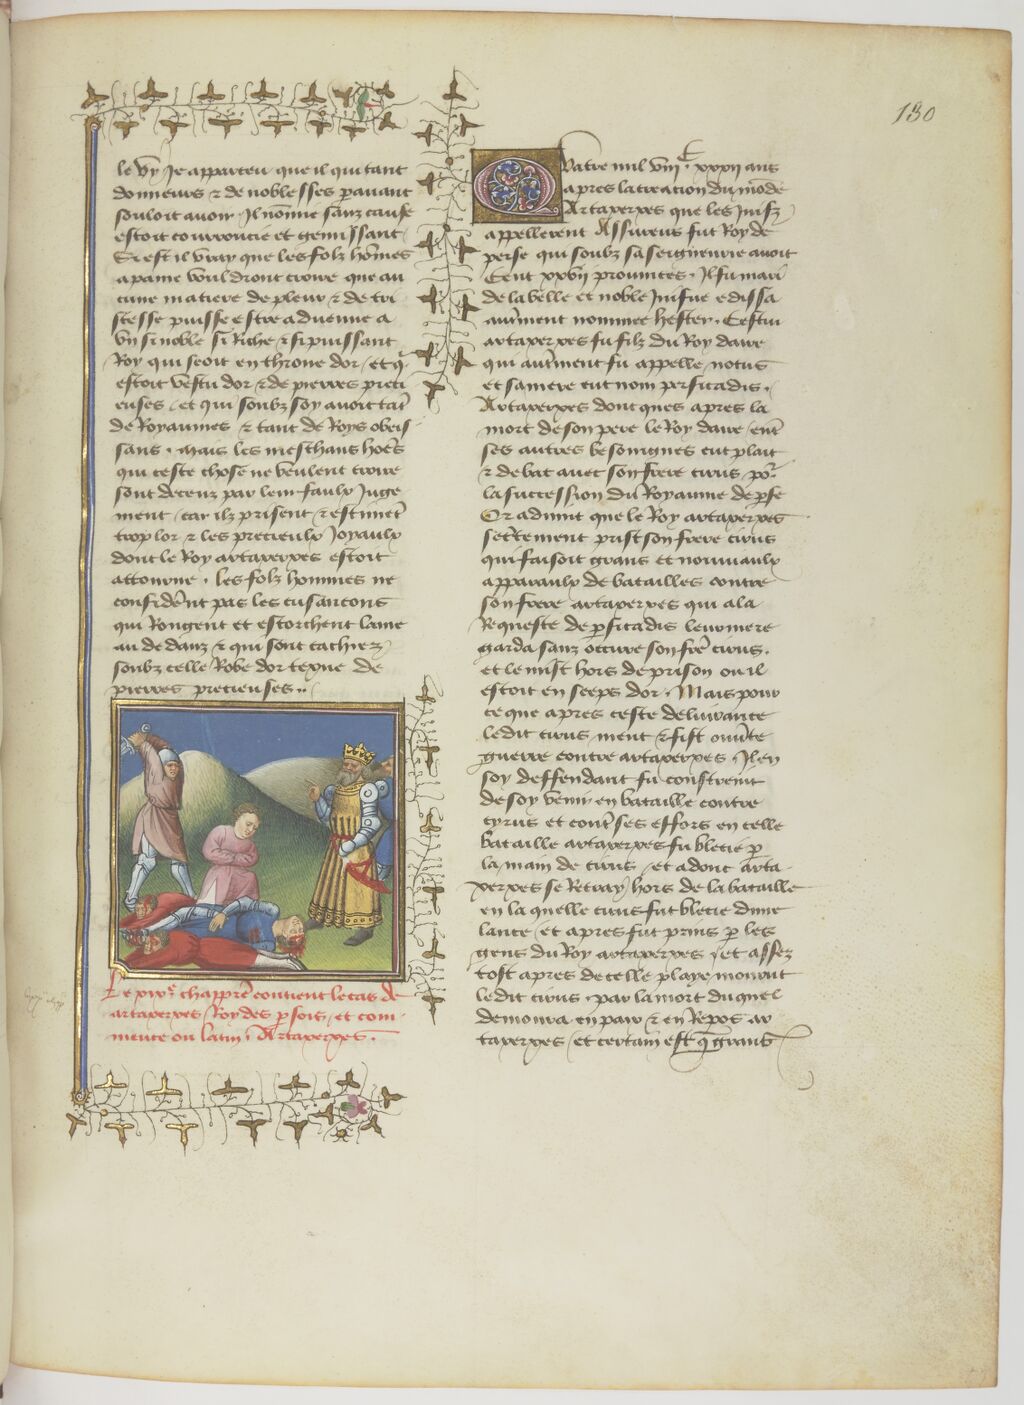 130
le vy Je apparceu que il qui tant
donneurs ⁊ de noblesses pauant
souloit auoir. Il nōme sanz cause
estoit courroucie et gemissant
Si est il vray que les folz hōmes
apaine vouldront croire que au
cune matiere de pleur ⁊ de tri
stesse puisse estre aduenue a
vn si noble si Riche ⁊ si puissant
Roy qui seoit en throne dor / et q̄
estoit vestu dor ⁊ de pierres preci
euses / et qui soubz soy auoit tāt
de Royaumes ⁊ tant de Roys obeis
sans. Mais les meschans hoēs
qui ceste chose ne veulent croire
sont deceuz par leur faulx Juge
ment / car ilz prisent ⁊ estimēt
trop lor ⁊ les precieulx Joyaulx
dont le Roy artaxerxes estoit
attourne. les folz hommes ne
considerēt pas les cusancons
qui Rongent et estorchent lame
au dedanz ⁊ qui sont cachiez
soubz celle Robe dor texue de
pierres precieuses..
Le xixe chappr̄e contient le cas de
artaxerxes Roy des psois / et com
mence ou latin. Artaxerxes.
Quatre mil viiic. xxxij ans
apres la creation du mōde
Artaxerxes que les Juifz
appellerent Assuerus fut Roy de
perse qui soubz sa seigneurie auoit
Cent xxvij prouinces. Il fu mari
de la belle et noble Juifue edissa
autmēnt nommee hester. Cestui
artaxerxes fu filz du Roy daire
qui autmēnt fu appelle notus
et sa mere eut nom psicadis.
Artaxerxes doncques apres la
mort de son pere le Roy daire / ent
ses autres besoingnes eut plait
⁊ debat auec son frere cirus po͛
la succession du Royaume de pse
Or aduint que le Roy artaxerxes
secr̄tement prist son frere cirus
qui faisoit grans et nouueaulx
apparaulx de batailles contre
son frere artaxerxes qui a la
Requeste de psicadis leur mere
garda sanz occire son fre͛ cirus.
et le mist hors de prison ou il
estoit en seeps dor. Mais pour
ce que apres ceste deliurance
ledit cirus ment ⁊ fist ouūte
guerre contre artaxerxes. Il en
soy deffendant fu constreint
de soy venir en bataille contre
cyrus et cont͛ ses effors en celle
bataille artaxerxes fu blecie p
la main de cirus / et adonc arta
xerxes se Retray hors de la bataille
en la quelle cirus fut blecie dune
lance / et apres fut prins p les
gens du Roy artaxerxes / et assez
tost apres de celle playe mourut
ledit cirus. par la mort du quel
demoura en paix ⁊ en Repos ar
taxerxes / et certain est q̄ grans